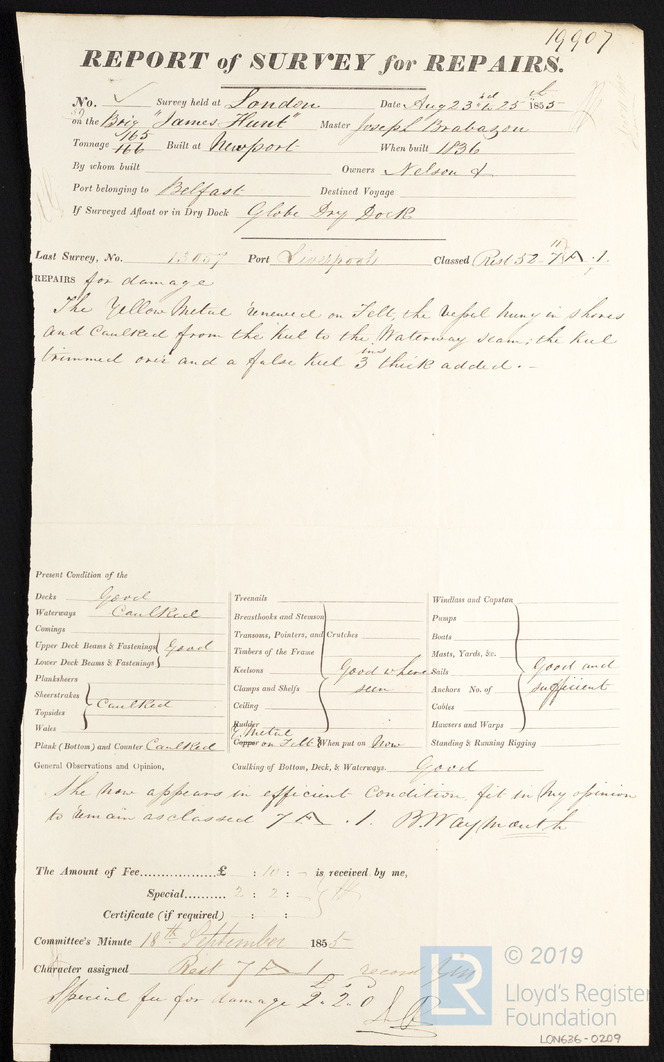 19907
REPORT of SURVEY for REPAIRS.
No. ✓ Survey held at London Date Aug 23rd & 25th 1855
on the Brig "James Hunt" Master Joseph Brabazon
Tonnage 165 166 Built at Newport When built 1836
By whom built Owners Nelson &
Port belonging to Belfast Destined Voyage
If Surveyed Afloat or in Dry Dock Globe Dry Dock
Last Survey, No. 13057 Port Liverpool Classed Rest 52-7 .1.
REPAIRS for damage
The Yellow Metal renewed on Felt, the vessel hung in shores
and Caulked from the Keel to the Waterway seam; the Keel
trimmed over and a false Keel 3 ins thick added.-
Present Condition of the
Decks Good
Waterways Caulked
Comings
Upper Deck Beams & Fastenings Good
Lower Deck Beams & Fastenings
Planksheers
Sheerstrakes
Topsides Caulked
Wales
Plank (Bottom) and Counter Caulked
Treenails
Breasthooks and Stemson
Transoms, Pointers, and Crutches
Timbers of the Frame
Keelsons Good where
Clamps and Shelfs seen
Ceiling
Rudder
Y. Metal
Copper on Felt When put on Now
Windlass and Capstan
Pumps
Boats
Masts, Yards, &c.
Sails Good and
Anchors No. of sufficient
Cables
Hawsers and Warps
Standing & Running Rigging
General Observations and Opinion, Caulking of Bottom, Deck, & Waterways. Good
She now appears in efficient Condition, fit in my opinion
to remain as classed 7 .1. B. Waymouth
The Amount of Fee £ : 10 : - is received by me,
Special 2 : 2 :
Certificate (if required) : :
Committee's Minute 18th September 1855
Character assigned Rest 7 1
Special fee for damage £2. 2. 0
© 2019
LR
Lloyd's Register
Foundation
LON636-0209